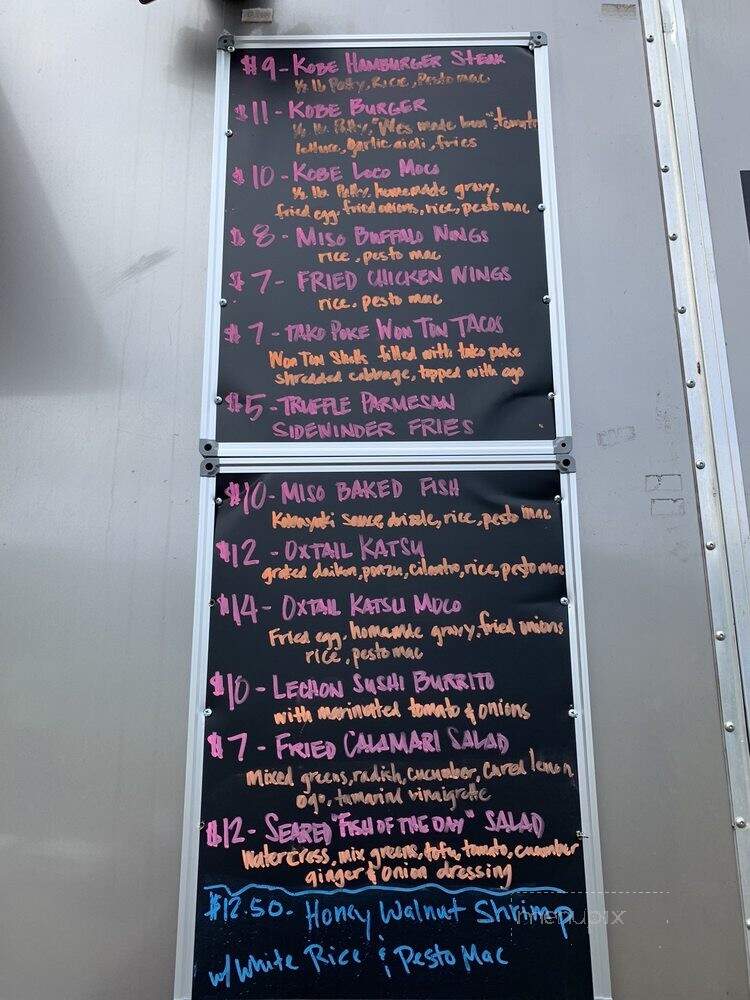 $9 - KOBE HAMBURGER STEAK
½ lb Patty, Rice, Pesto mac
$11 - KOBE BURGER
½ lb. Patty, "Wes made bun", tomato
lettuce, garlic aioli, fries
$10 - KOBE LOCO MOCO
½ lb. Patty, homemade gravy,
fried egg, fried onions, rice, pesto mac
$8 - MISO BUFFALO WINGS
rice, pesto mac
$7 - FRIED CHICKEN WINGS
rice, pesto mac
$7 - TAKO POKE WON TON TACOS
Won Ton Shells filled with tako poke
shredded cabbage, topped with ogo
$5 - TRUFFLE PARMESAN
SIDEWINDER FRIES
$10 - MISO BAKED FISH
Kabayaki sauce drizzle, rice, pesto mac
$12 - OXTAIL KATSU
grated daikon, ponzu, cilantro, rice, pesto mac
$14 - OXTAIL KATSU MOCO
Fried egg, homemade gravy, fried onions
rice, pesto mac
$10 - LECHON SUSHI BURRITO
with marinated tomato & onions
$7 - FRIED CALAMARI SALAD
Mixed greens, radish, cucumber, cured lemon,
ogo, tamarind vinaigrette
$12 - SEARED "FISH OF THE DAY" SALAD
Watercress, mix greens, tofu, tomato, cucumber
ginger & onion dressing
$12.50 - Honey Walnut Shrimp
w/ White Rice & Pesto Mac
menupix